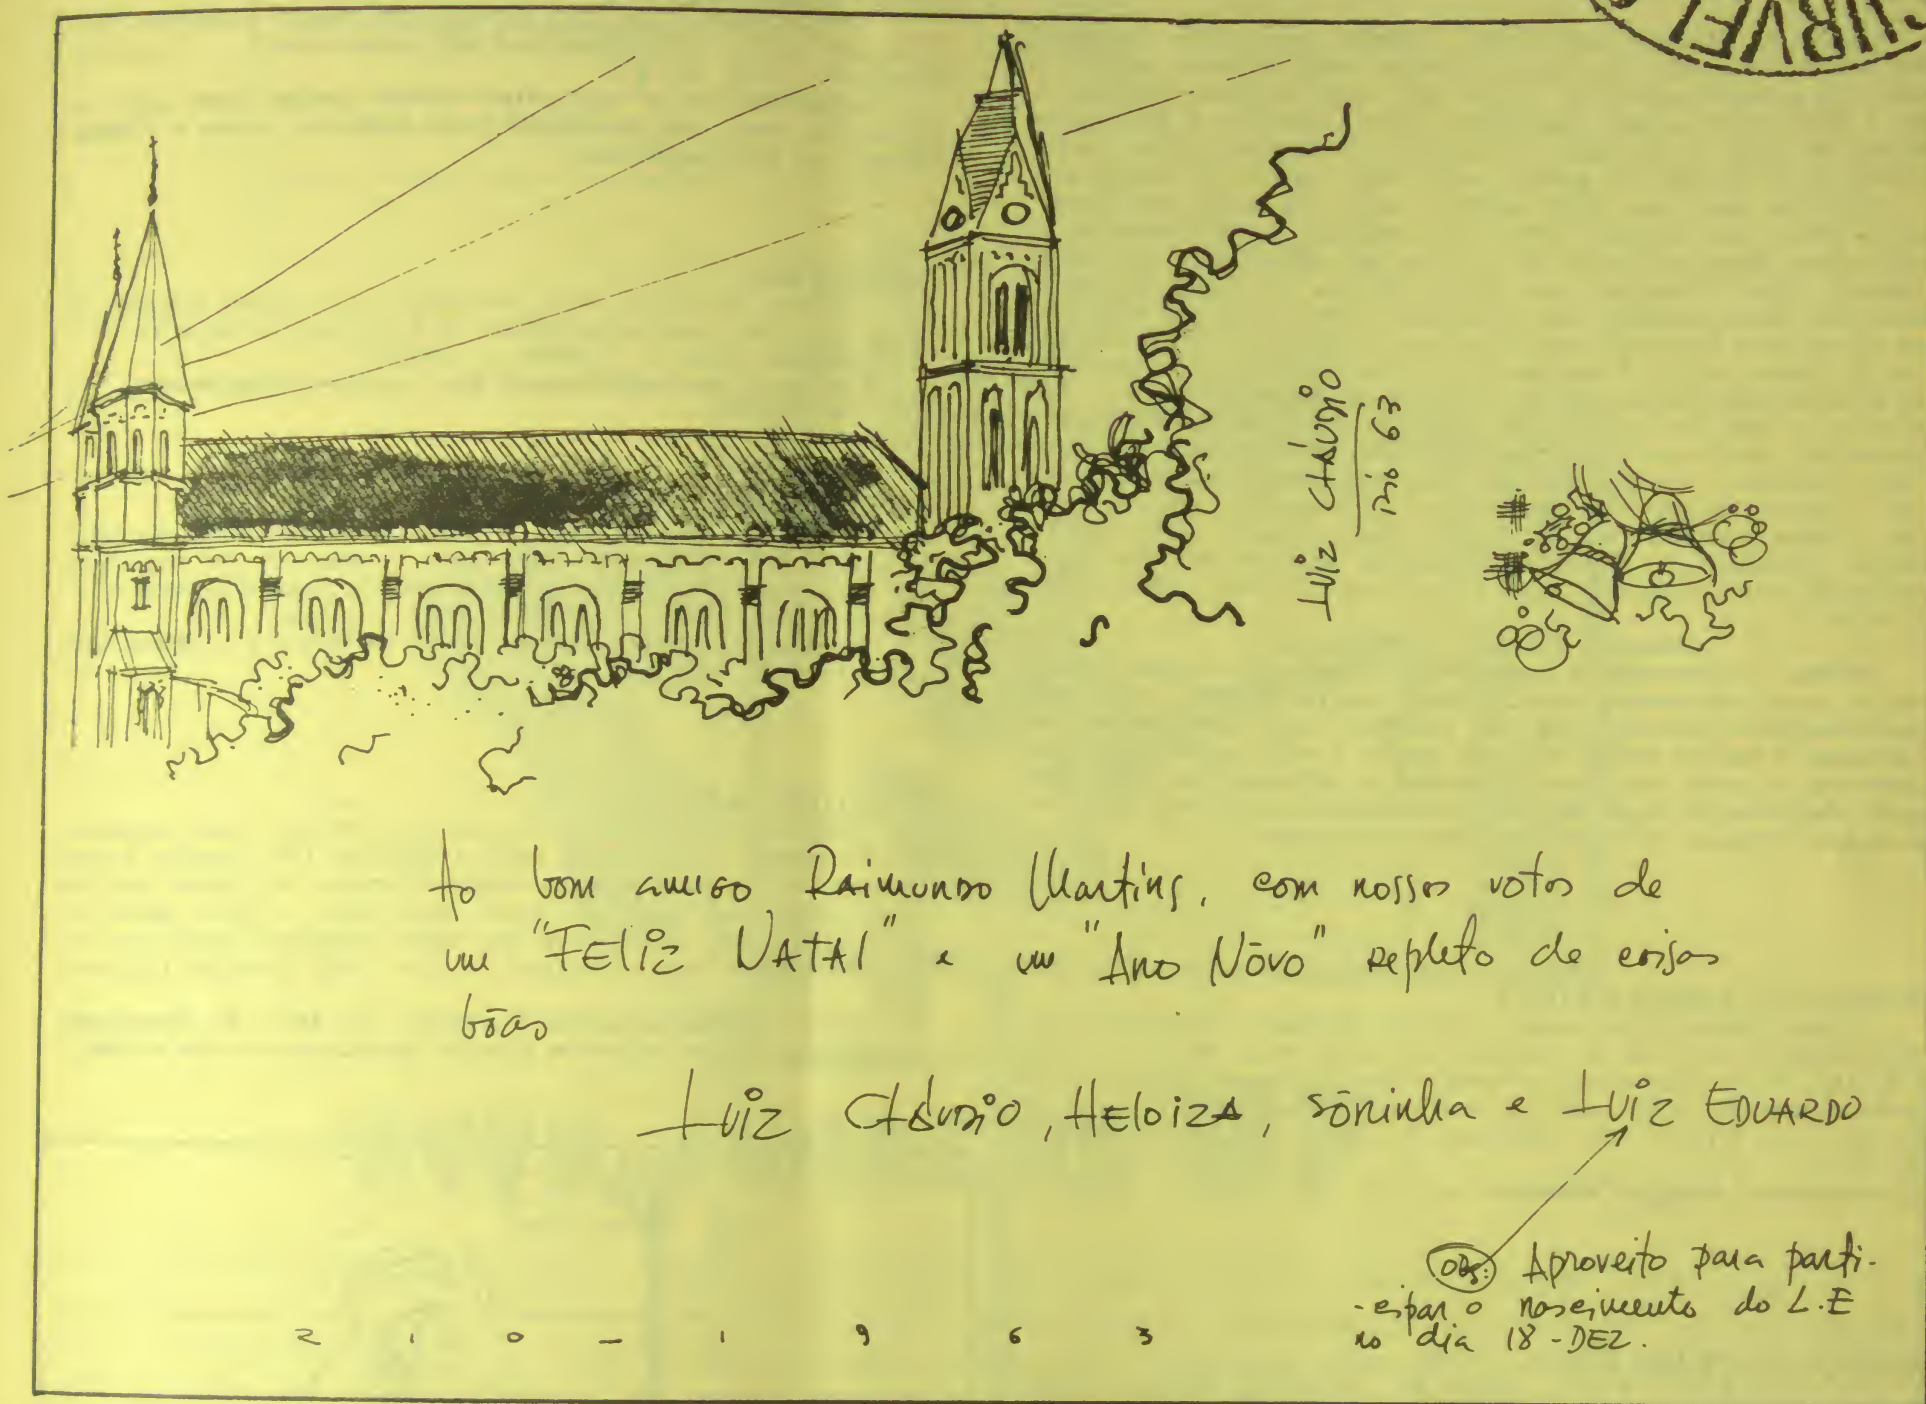 LUiZ CLÁUDiO
Rio 63
Ao bom amigo Raimundo Martins, com nossos votos de
um "FELiZ NATAL" e um "Ano Nôvo" repleto de coisas
bôas
LUiZ CLÁUDiO, HELOiZA, sôninha e LUiZ EDUARDO
OBS: Aproveito para parti-
-cipar o nascimento do L.E
no dia 18-DEZ.
2 1 0 – 1 9 6 3